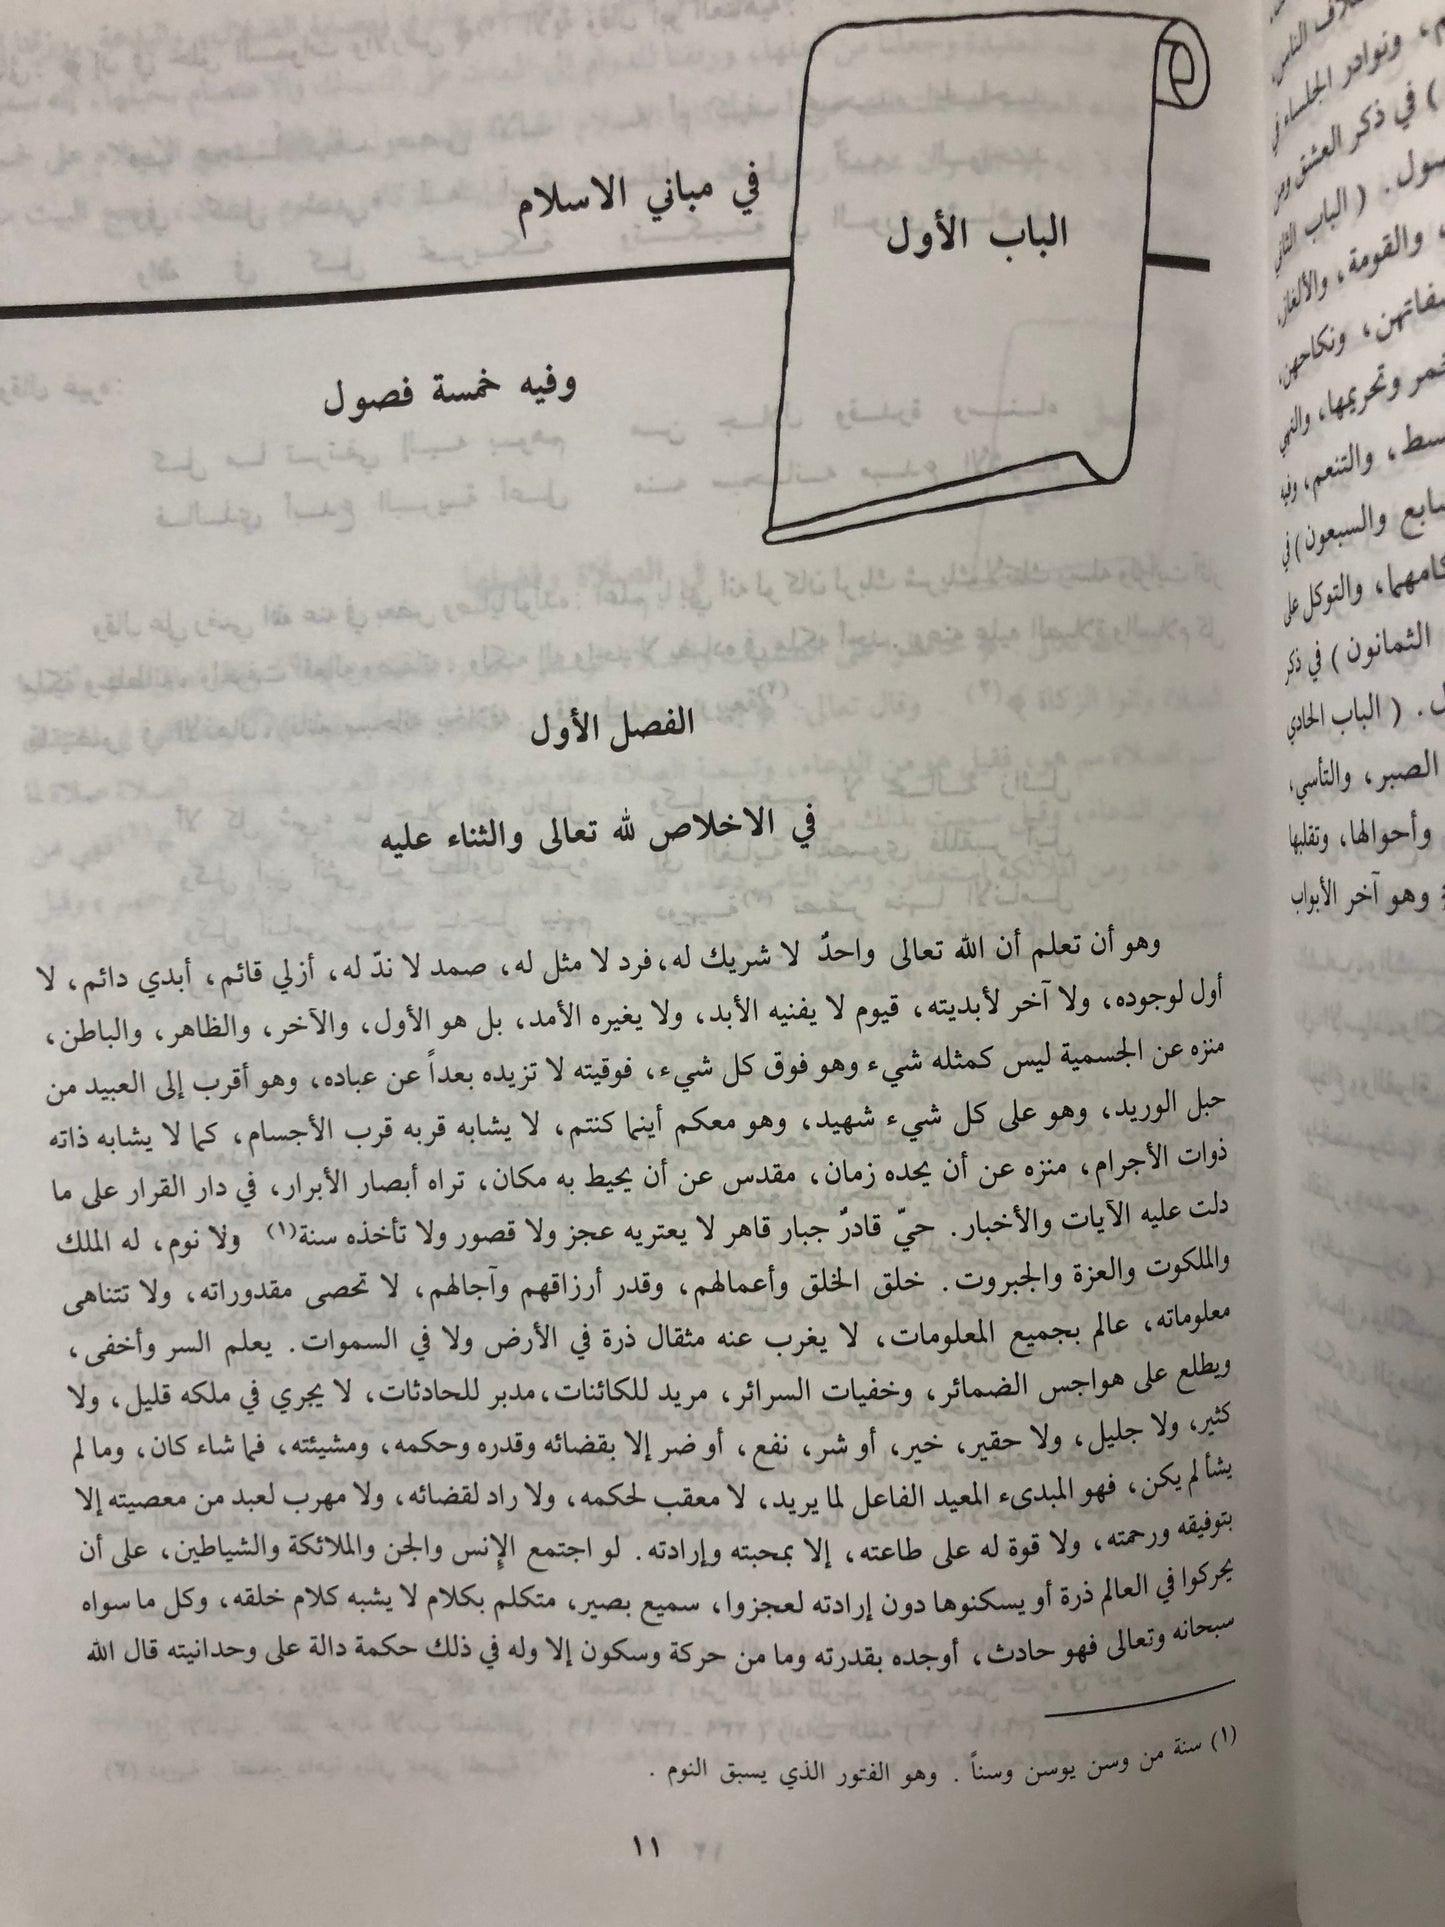 الباب الأول
في مباني الاسلام
وفيه خمسة فصول
الفصل الأول
في الاخلاص لله تعالى والثناء عليه
وهو أن تعلم أن الله تعالى واحدٌ لا شريك له، فرد لا مثل له، صمد لا ندّ له، أزلي قائم، أبدي دائم، لا
أول لوجوده، ولا آخر لأبديته، قيوم لا يفنيه الأبد، ولا يغيره الأمد، بل هو الأول، والآخر، والظاهر، والباطن،
منزه عن الجسمية ليس كمثله شيء وهو فوق كل شيء، فوقيته لا تزيده بعداً عن عباده، وهو أقرب إلى العبيد من
حبل الوريد، وهو على كل شيء شهيد، وهو معكم أينما كنتم، لا يشابه قربه قرب الأجسام، كما لا يشابه ذاته
ذوات الأجرام، منزه عن أن يحده زمان، مقدس عن أن يحيط به مكان، تراه أبصار الأبرار، في دار القرار على ما
دلت عليه الآيات والأخبار. حيّ قادرٌ جبار قاهر لا يعتريه عجز ولا قصور ولا تأخذه سنة(١) ولا نوم، له الملك
والملكوت والعزة والجبروت. خلق الخلق وأعمالهم، وقدر أرزاقهم وآجالهم، لا تحصى مقدوراته، ولا تتناهى
معلوماته، عالم بجميع المعلومات، لا يغرب عنه مثقال ذرة في الأرض ولا في السموات. يعلم السر وأخفى،
ويطلع على هواجس الضمائر، وخفيات السرائر، مريد للكائنات، مدبر للحادثات، لا يجري في ملكه قليل، ولا
كثير، ولا جليل، ولا حقير، خير، أو شر، نفع، أو ضر إلا بقضائه وقدره وحكمه، ومشيئته، فما شاء كان، وما لم
يشأ لم يكن، فهو المبدىء المعيد الفاعل لما يريد، لا معقب لحكمه، ولا راد لقضائه، ولا مهرب لعبد من معصيته إلا
بتوفيقه ورحمته، ولا قوة له على طاعته، إلا بمحبته وإرادته. لو اجتمع الإنس والجن والملائكة والشياطين، على أن
يحركوا في العالم ذرة أو يسكنوها دون إرادته لعجزوا، سميع بصير، متكلم بكلام لا يشبه كلام خلقه، وكل ما سواه
سبحانه وتعالى فهو حادث، أوجده بقدرته وما من حركة وسكون إلا وله في ذلك حكمة دالة على وحدانيته قال الله
(١) سنة من وسن يوسن وسناً . وهو الفتور الذي يسبق النوم .
١١
، ونوادر الجلساء في
) في ذكر العشق ومن
. ( الباب الثاني
، والقومة، والألغاز،
، ونكاحهن،
وتحريمها، والنهي
، والتنعم، وفيه
والسبعون) في
، والتوكل على
الثمانون ) في ذكر
. ( الباب الحادي
الصبر، والتأسي،
وأحوالها، وتقلبها
وهو آخر الأبواب